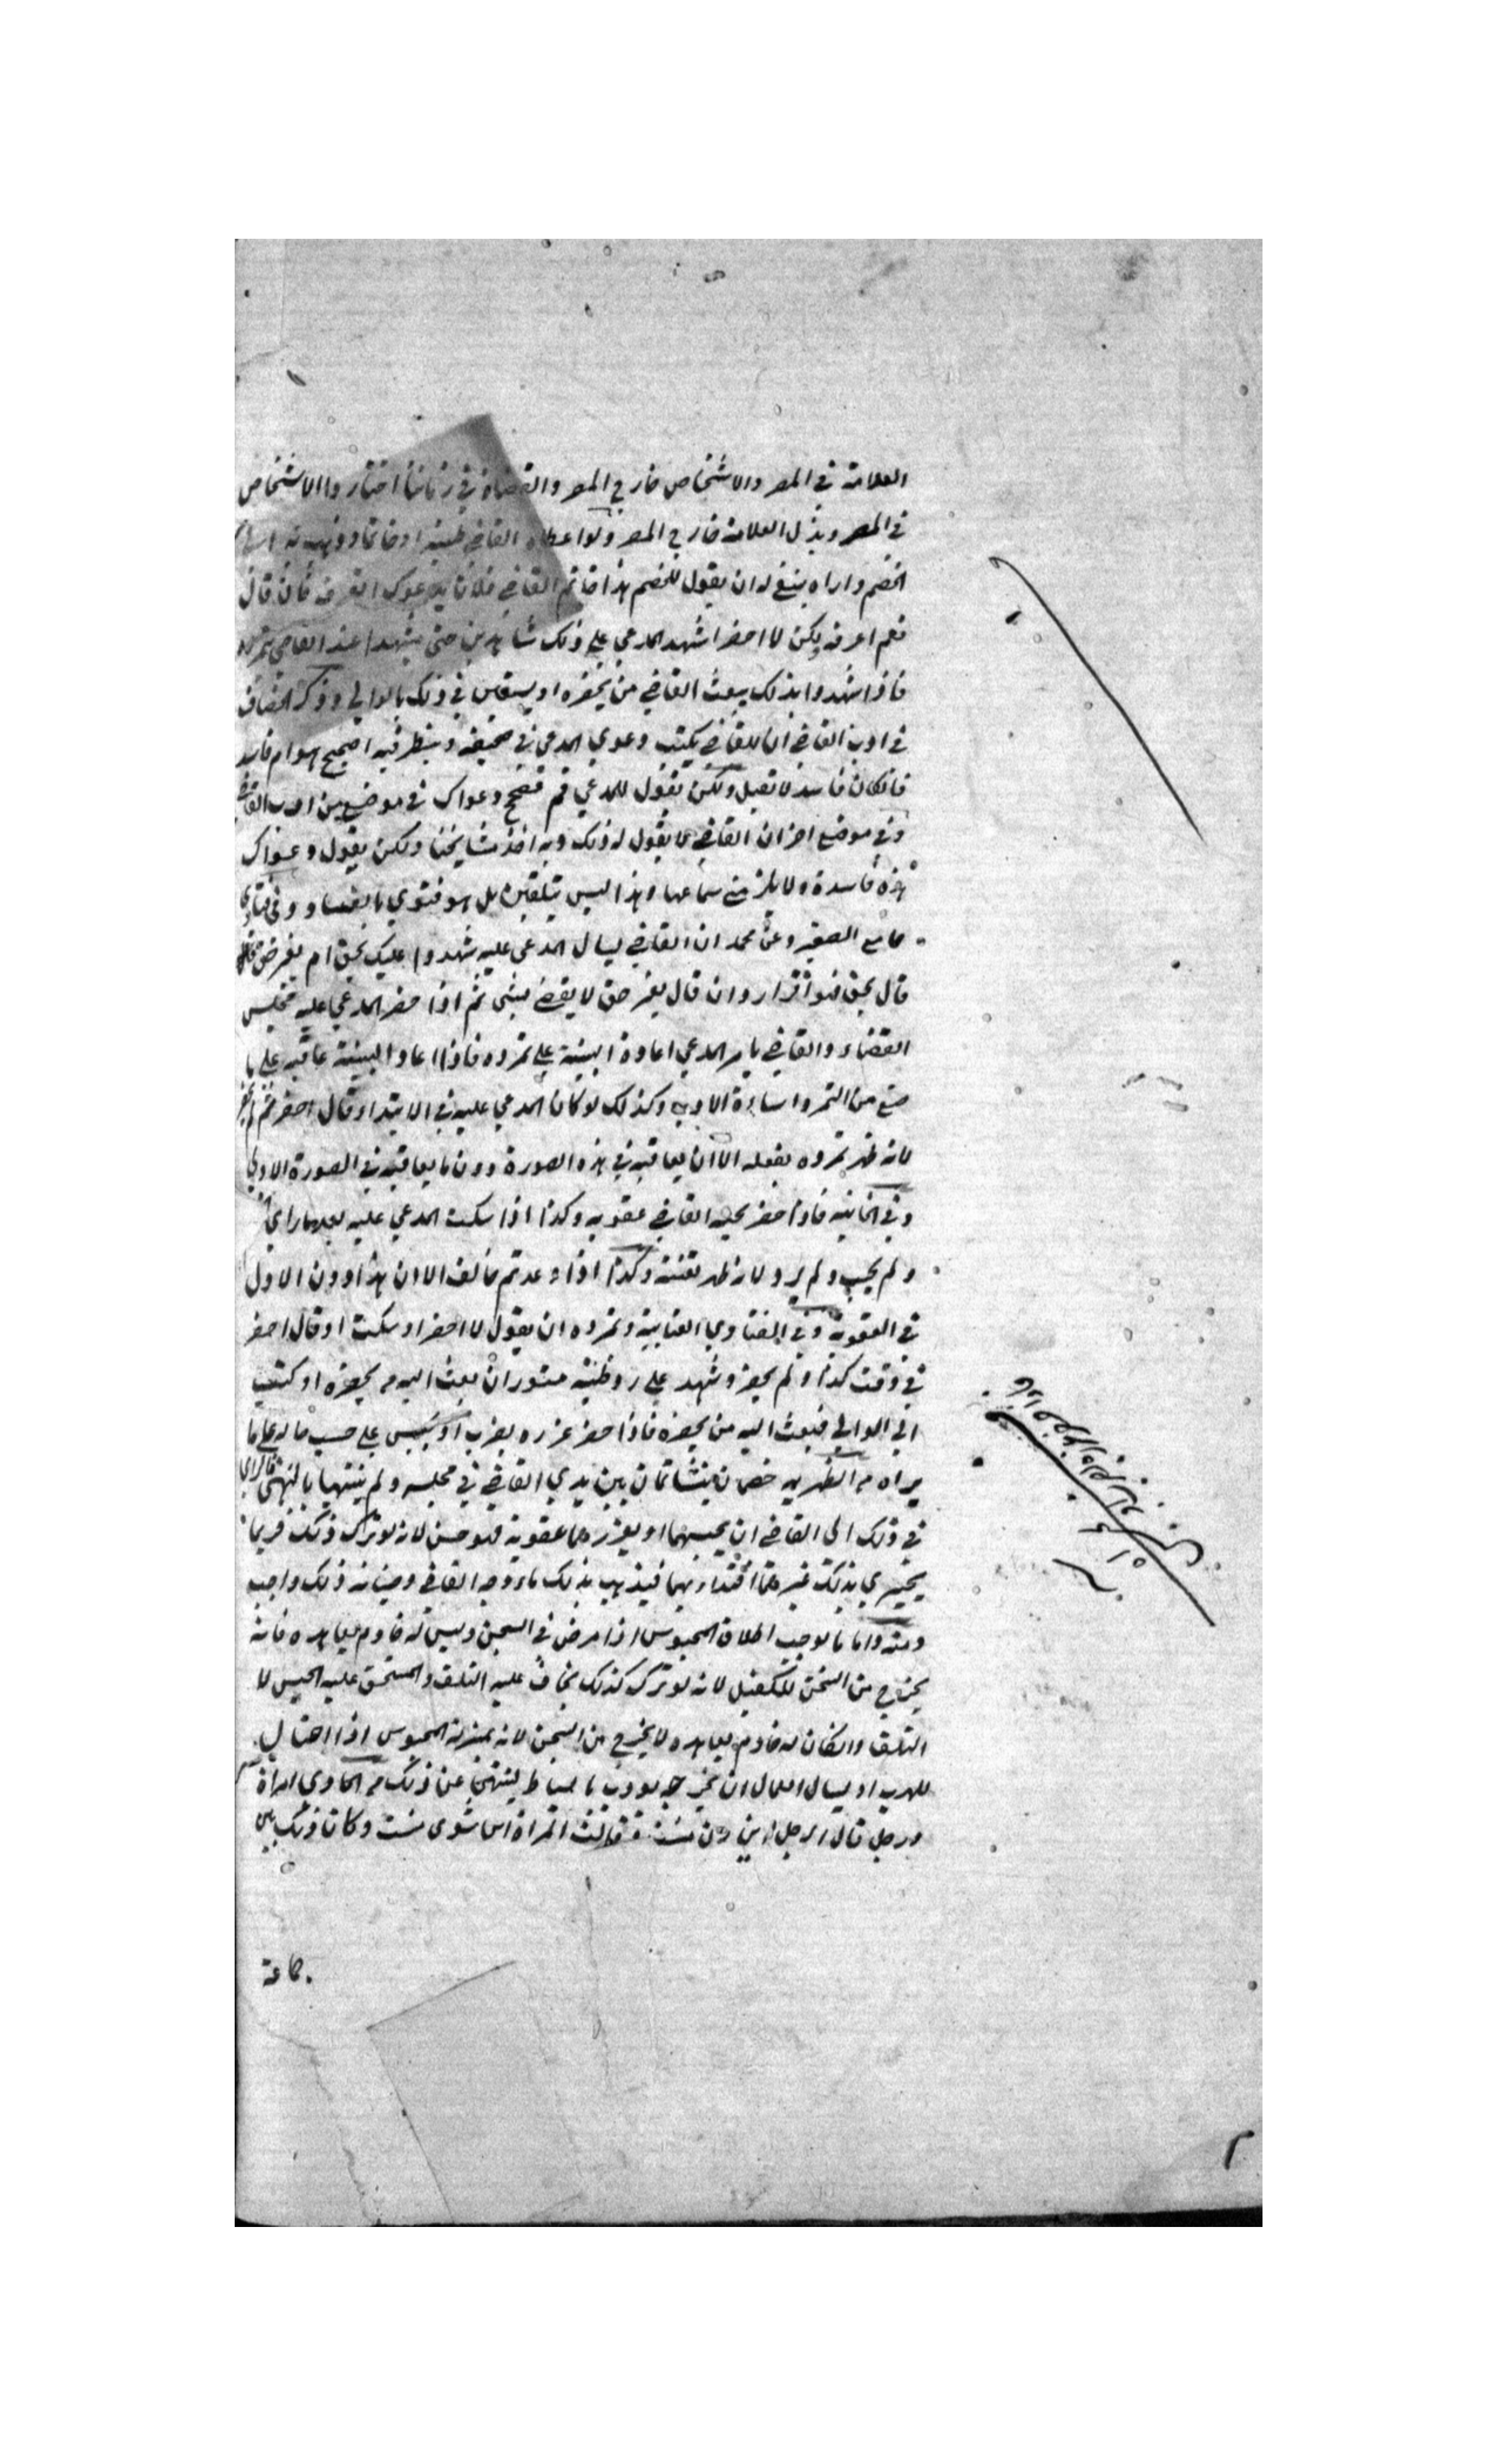 العلامة في المصر والاشخاص خارج المصر والقضاة في زماننا اختاروا الاشخاص
في المصر وبذل العلامة خارج المصر ولو اعطاه القاضي طينة او خاتما وذهب به
الخصم واراه ينبغي له ان يقول للخصم هذا خاتم القاضي فلان يدعوك اتعرفه فان قال
نعم اعرفه ولكن لا احضر اشهد المدعي على ذلك شاهدين حتى يشهدا عند القاضي بتمرده
فاذا شهدوا بذلك يبعث القاضي من يحضره او يستعين في ذلك بالوالي وذكر الخصاف
في ادب القاضي ان للقاضي يكتب دعوي المدعي في صحيفة وينظر فيه اصحيح هو ام فاسد
فان كان فاسد لا تقبل ولكن يقول للمدعي قم فصحح دعواك في موضع من ادب القاضي
وفي موضع اخر ان القاضي لا يقول له ذلك وبه اخذ مشايخنا ولكن يقول دعواك
هذه فاسدة ولا يلزمني سماعها وهذا ليس بتلقين بل هو فتوي بالفساد وفي فتاوي
جامع الصغير وعن محمد ان القاضي يسال المدعي عليه شهدوا عليك بحق ام بغير حق
قال بحق فهو اقرار وان قال بغير حق لا يقضي بشي ثم اذا حضر المدعي عليه مجلس
القضاء والقاضي يامر المدعي اعادة البينة على تمرده فاذا اعاد البينة عاقبه على ما
صنع من التمرد اساءة الادب وكذلك لو كان المدعي عليه في الابتداء قال احضر ثم لم يحضر
لانه ظهر تمرده بفعله الا ان يعاقبه في هذه الصورة دون ما يعاقبه في الصورة الاولي
وفي الخانية فاذا حضر يحبسه القاضي عقوبه وكذا اذا سكت المدعي عليه بعد ما راي
ولم يجب ولم يرد لانه ظهر تعنته وكذا اذا وعد ثم خالف الا ان هذا دون الاول
في العقوبة وفي الفتاوي العتابية وتمرده ان يقول لا احضر او سكت او قال احضر
في وقت كذا ولم يحضر وشهد على رد طينة مستوران بعث اليه من يحضره او كتب
الي الوالي فبعث اليه من يحضره فاذا حضر عزره بضرب او بحبس على حسب حاله على ما
يراه من الظهيرية خصمان يتشاتمان بين يدي القاضي في مجلسه ولم ينتهيا بالنهي فالراي
في ذلك الى القاضي ان يحبسهما او يعزرهما عقوبة فهو حسن لانه لو ترك ذلك فربما
يجتري بذلك غيرهما اقتداء بهما فيذهب بذلك ماء وجه القاضي وصيانة ذلك واجب
ومنه واما ما يوجب اطلاق المحبوس اذا مرض في السجن وليس له خادم يعاهده فانه
يخرج من السجن للكفيل لانه لو ترك كذلك يخاف عليه التلف والمستحق عليه الحبس لا
التلف وان كان له خادم يعاهده لا يخرج من السجن لانه بمنزلة المحبوس اذا احتال
للهرب او يسال العمال ان يخرجه يودب باسياط لينتهي عن ذلك من الحاوي امراة
ورجل قال الرجل اين زن منست وقالت المراة اين شوي منست وكان ذلك بين
جماعة
٢